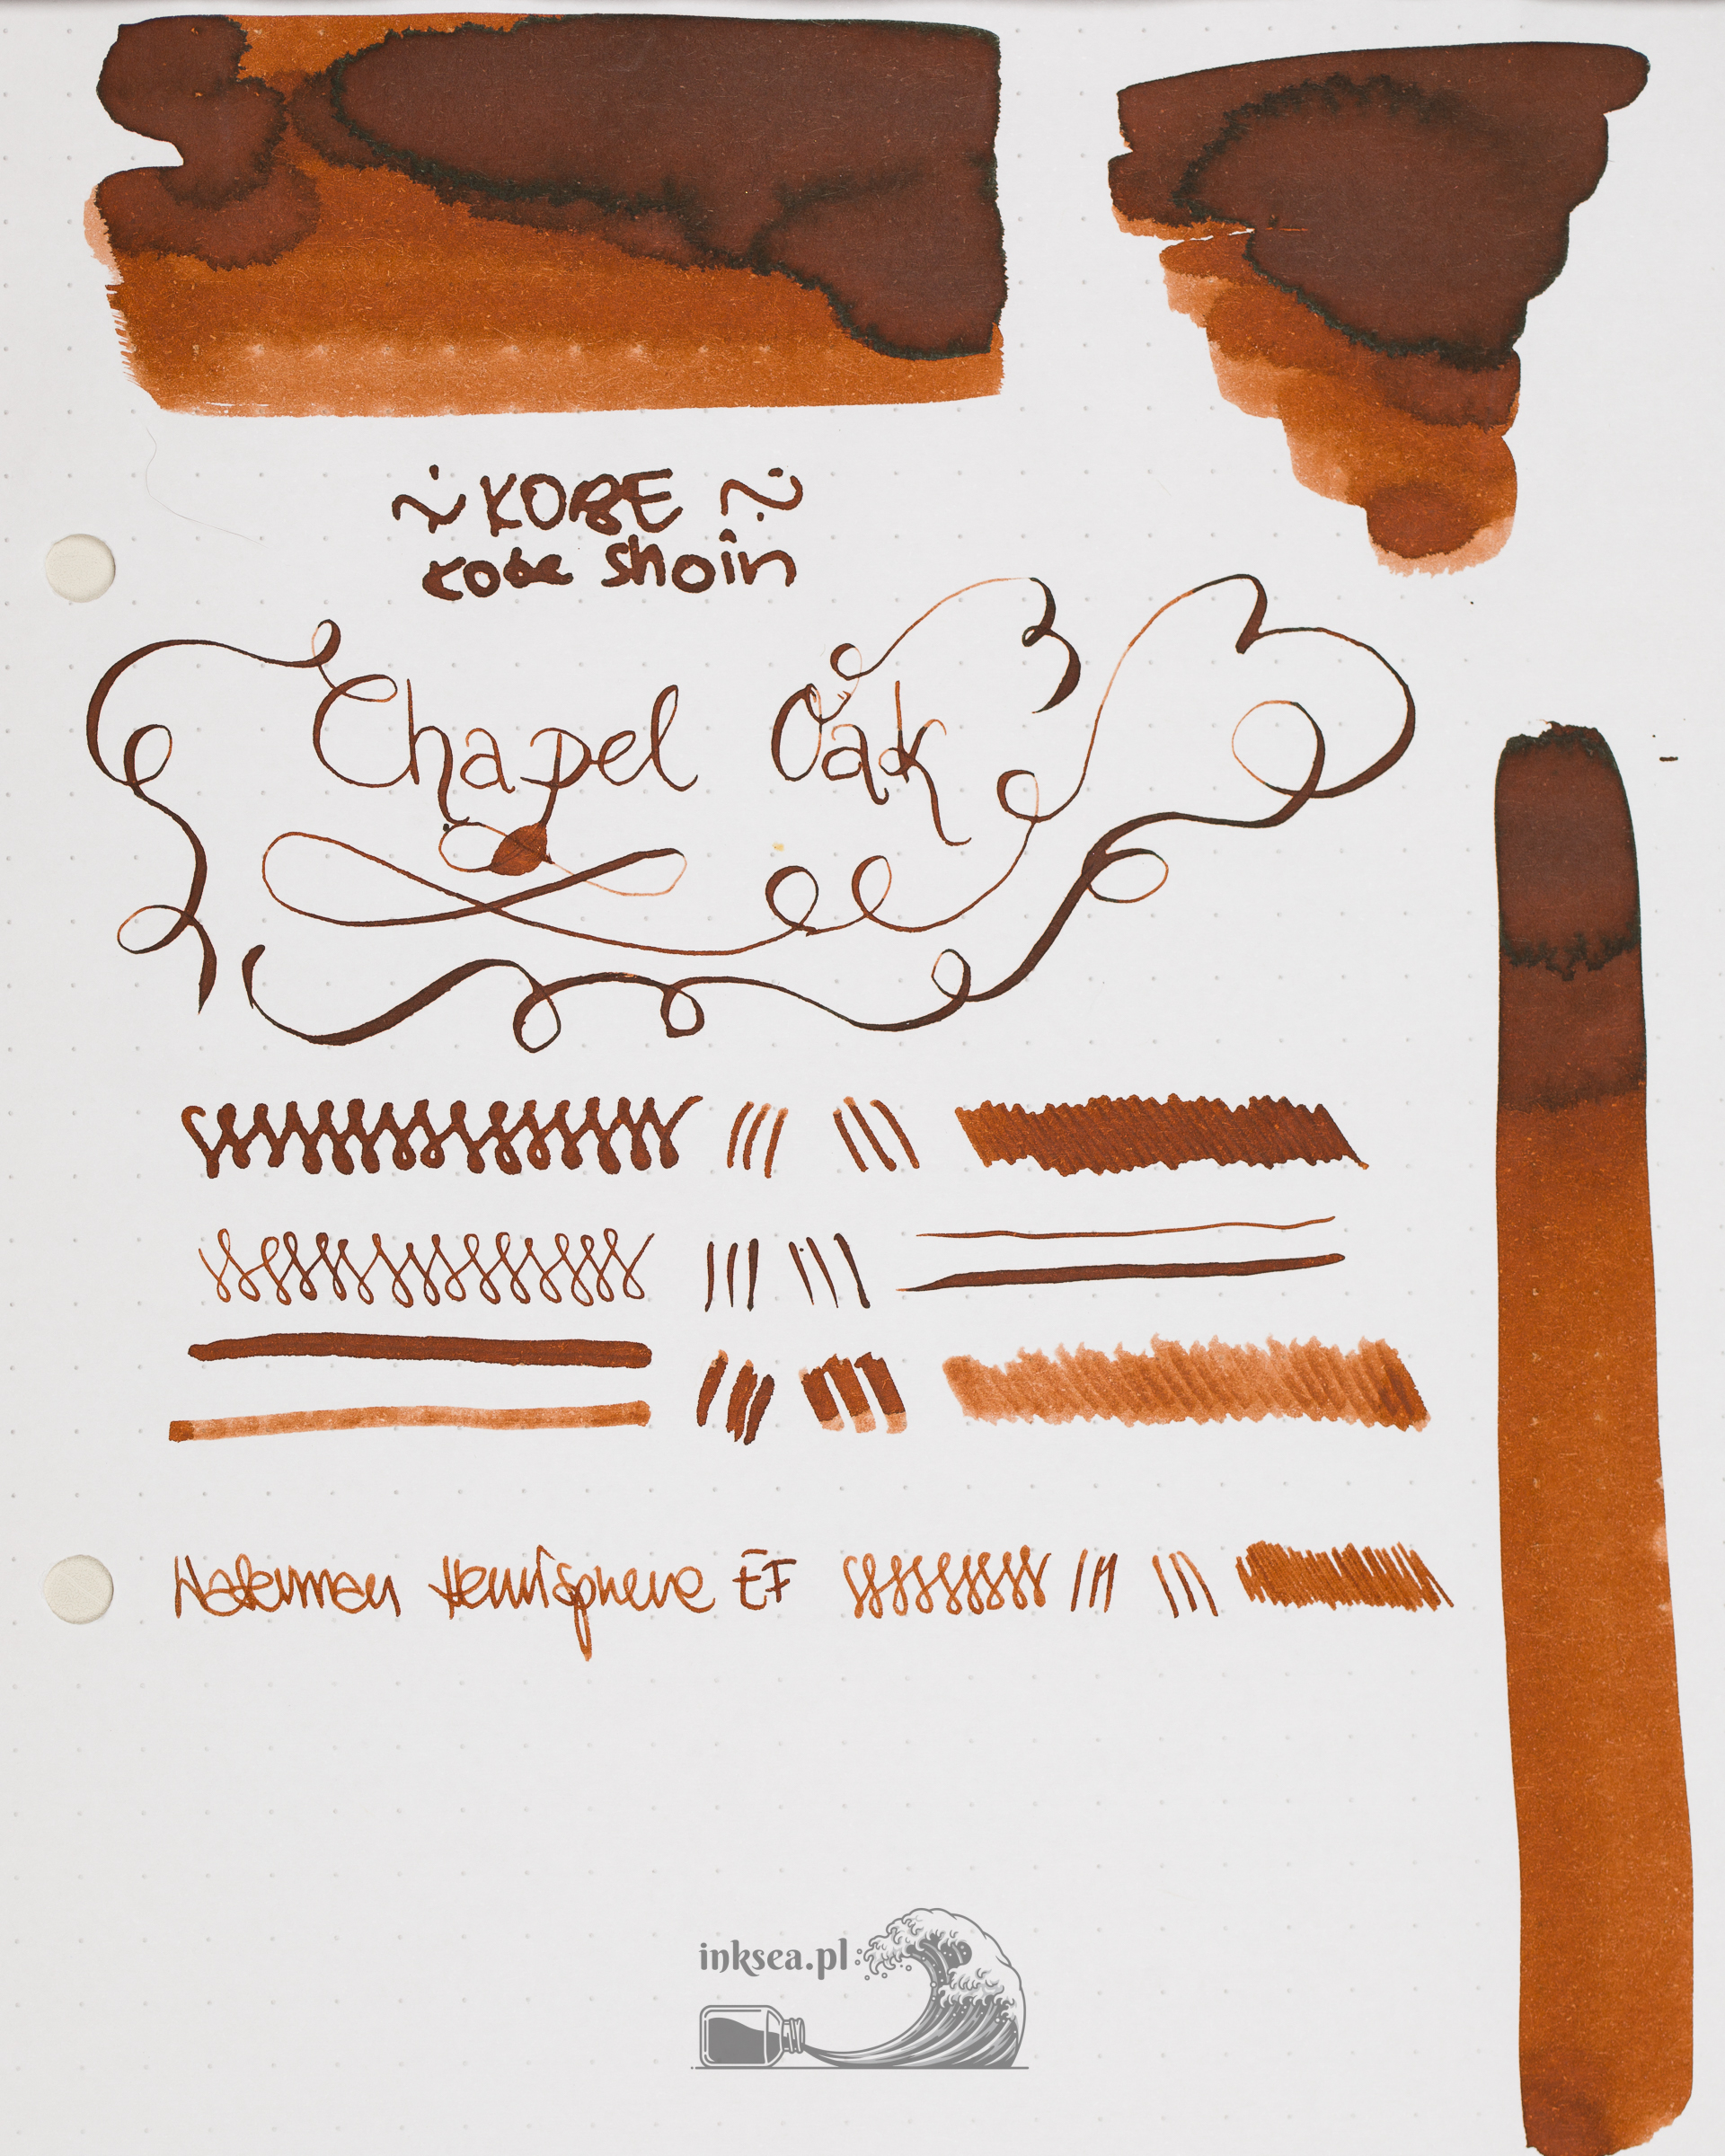 ~KOBE~
Kobe Shoin
Chapel Oak
Waterman Hemisphere EF
inksea.pl